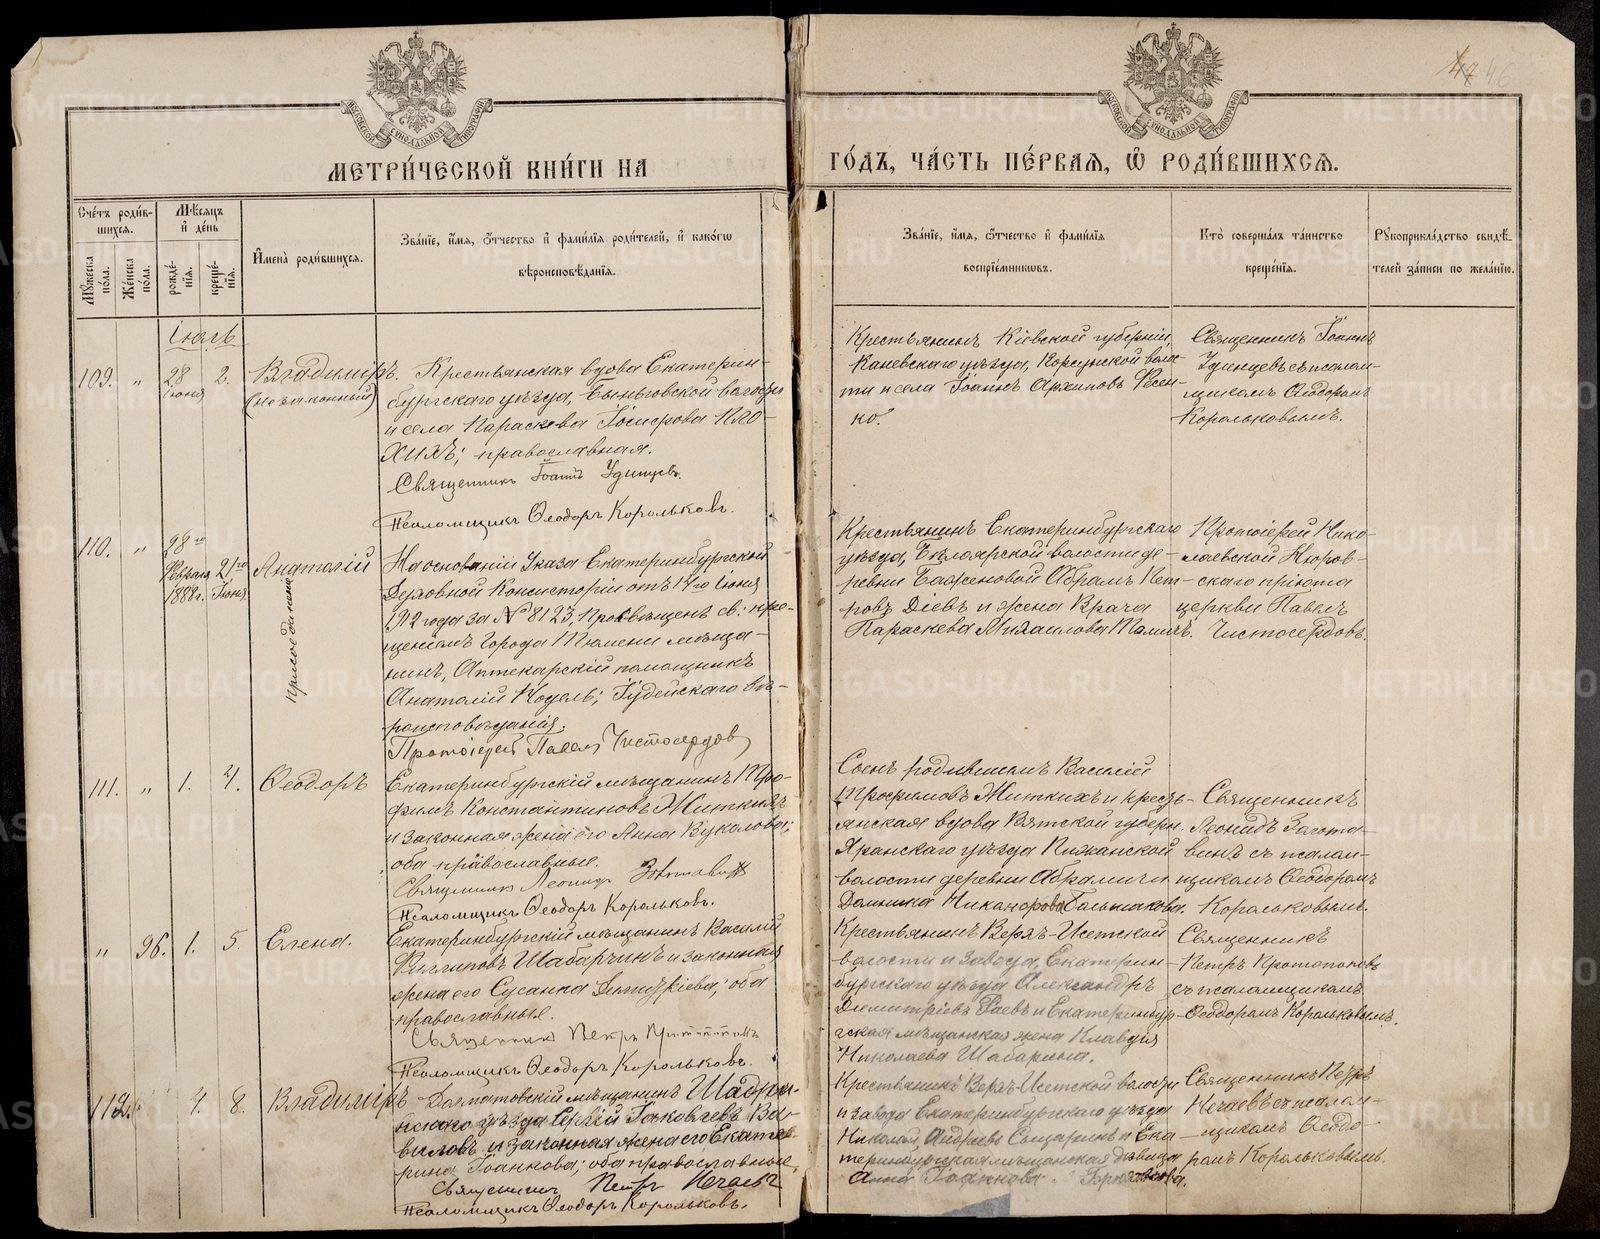 46
МОСКОВСКОЙ СѴНОДАЛЬНОЙ ТИПОГРАФІИ
МОСКОВСКОЙ СѴНОДАЛЬНОЙ ТИПОГРАФІИ
МЕТРИ́ЧЕСКОЙ КНИ́ГИ НА ГО́ДЪ, ЧА́СТЬ ПЕ́РВАЯ, Ѡ РОДИ́ВШИХСЯ.
Сче́тъ роди́в-
шихся.
Мꙋ́жеска по́ла.
Же́нска по́ла.
Мѣ́сяцъ
и҆ де́нь
рожде́нїя.
креще́нїя.
И҆мена̀ роди́вшихся.
Зва́нїе, и҆́мя, ѻ҆́тчество и҆ фами́лїя роди́телей, и҆ како́гѡ
вѣроисповѣ́данїя.
Зва́нїе, и҆́мя, ѻ҆́тчество и҆ фами́лїя
воспрїе́мниковъ.
Кто̀ соверша́лъ та́инство
креще́нїя.
Рꙋкоприкла́дство свидѣ́-
телей за́писи по жела́нїю.
Іюль
109. " 28 Іюня 2.
Владиміръ.
(незаконный)
Крестьянская вдова Екатерин-
бургскаго уѣзда, Быньговской волости
и села Параскева
православная.
Священникъ Іоаннъ Удинцевъ.
Псаломщикъ Ѳеодоръ Корольковъ.
Крестьянинъ Кіевской губерніи,
Каневскаго уѣзда, Корсунской воло-
сти и села Іоаннъ Архиповъ Фесен-
ко.
Священникъ Іоаннъ
Удинцевъ съ псалом-
щикомъ Ѳеодоромъ
Корольковымъ.
110. " 28го Февраля 1888 г. 21го Іюня
Анатолій
присоединенъ
На основаніи Указа Екатеринбургской
Духовной Консисторіи отъ 14го Іюня
1912 года за № 8123, просвѣщенъ св. кре-
щеніемъ города Тюмени мѣща-
нинъ, Аптекарскій помощникъ
Анатолій Нодель; Іудейскаго вѣ-
роисповѣданія.
Протоіерей Павелъ Чистосердовъ
Крестьянинъ Екатеринбургскаго
уѣзда, Бѣлоярской волости де-
ревни Баженовой Абрамъ Пет-
ровъ Діевъ и жена Врача
Параскева Михаилова
Протоіерей Нико-
лаевской Нуров-
скаго пріюта
церкви Павелъ
Чистосердовъ.
111. " 1. 4.
Ѳеодоръ
Екатеринбургскій мѣщанинъ Тро-
фимъ Константиновъ Житкихъ
и законная жена его Анна Вуколова;
оба православные.
Священникъ Леонидъ
Псаломщикъ Ѳеодоръ Корольковъ.
Сынъ родившихъ Василій
Трофимовъ Житкихъ и кресть-
янская вдова Вятской губерн.
Яранскаго уѣзда Пижанской
волости деревни
Домника Никанорова Большакова.
Священникъ
Леонидъ Загота-
винъ съ псалом-
щикомъ Ѳеодоромъ
Корольковымъ.
" 96. 1. 5.
Елена.
Екатеринбургскій мѣщанинъ Василій
Филипповъ Шабарчинъ и законная
жена его Сусанна; оба
православные.
Священникъ Петръ
Псаломщикъ Ѳеодоръ Корольковъ.
Крестьянинъ Верхъ-Исетской
волости и завода, Екатерин-
бургскаго уѣзда Александръ
Димитріевъ Раевъ и Екатеринбур-
гская мѣщанская жена Клавдія
Николаева
Священникъ
Петръ Протопоповъ
съ псаломщикомъ
Ѳеодоромъ Корольковымъ.
112. " 4. 8.
Владиміръ
Далматовскій мѣщанинъ Шадрин-
скаго уѣзда Сергій Іаковлевъ Ва-
виловъ и законная жена его Екате-
рина Іоаннова; оба православные.
Священникъ Петръ Нечаевъ
Псаломщикъ Ѳеодоръ Корольковъ.
Крестьянинъ Верхъ-Исетской волости
и завода Екатеринбургскаго уѣзда
Николай Андреевъ и Ека-
теринбургская мѣщанская дѣвица
Анна Іоаннова
Священникъ Петръ
Нечаевъ съ псалом-
щикомъ Ѳеодо-
ромъ Корольковымъ.
METRIKI.GASO-URAL.RU